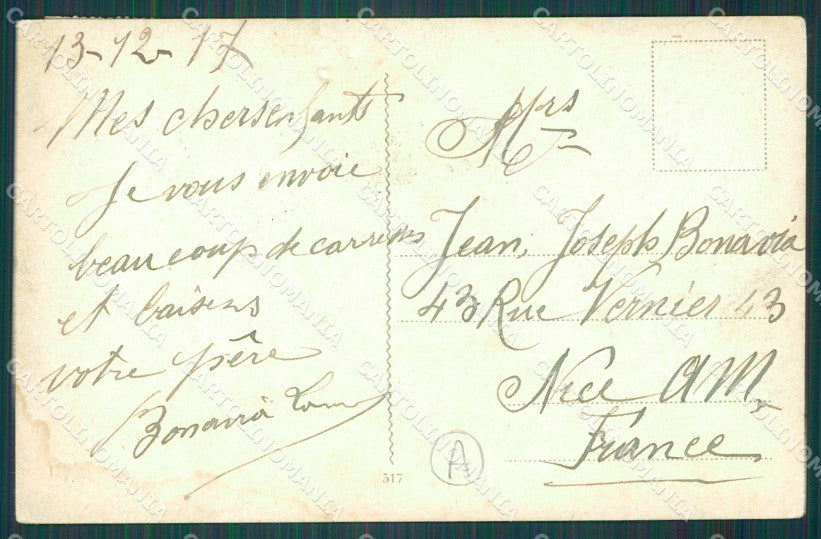 13-12-17
Mes chers enfants
Je vous envoie
beaucoup de carresses
et baisers
votre père
Bonavia
Mrs
Jean, Joseph Bonavia
43 Rue Vernier 43
Nice AM.
France
A
517
CARTOLINOMANIA